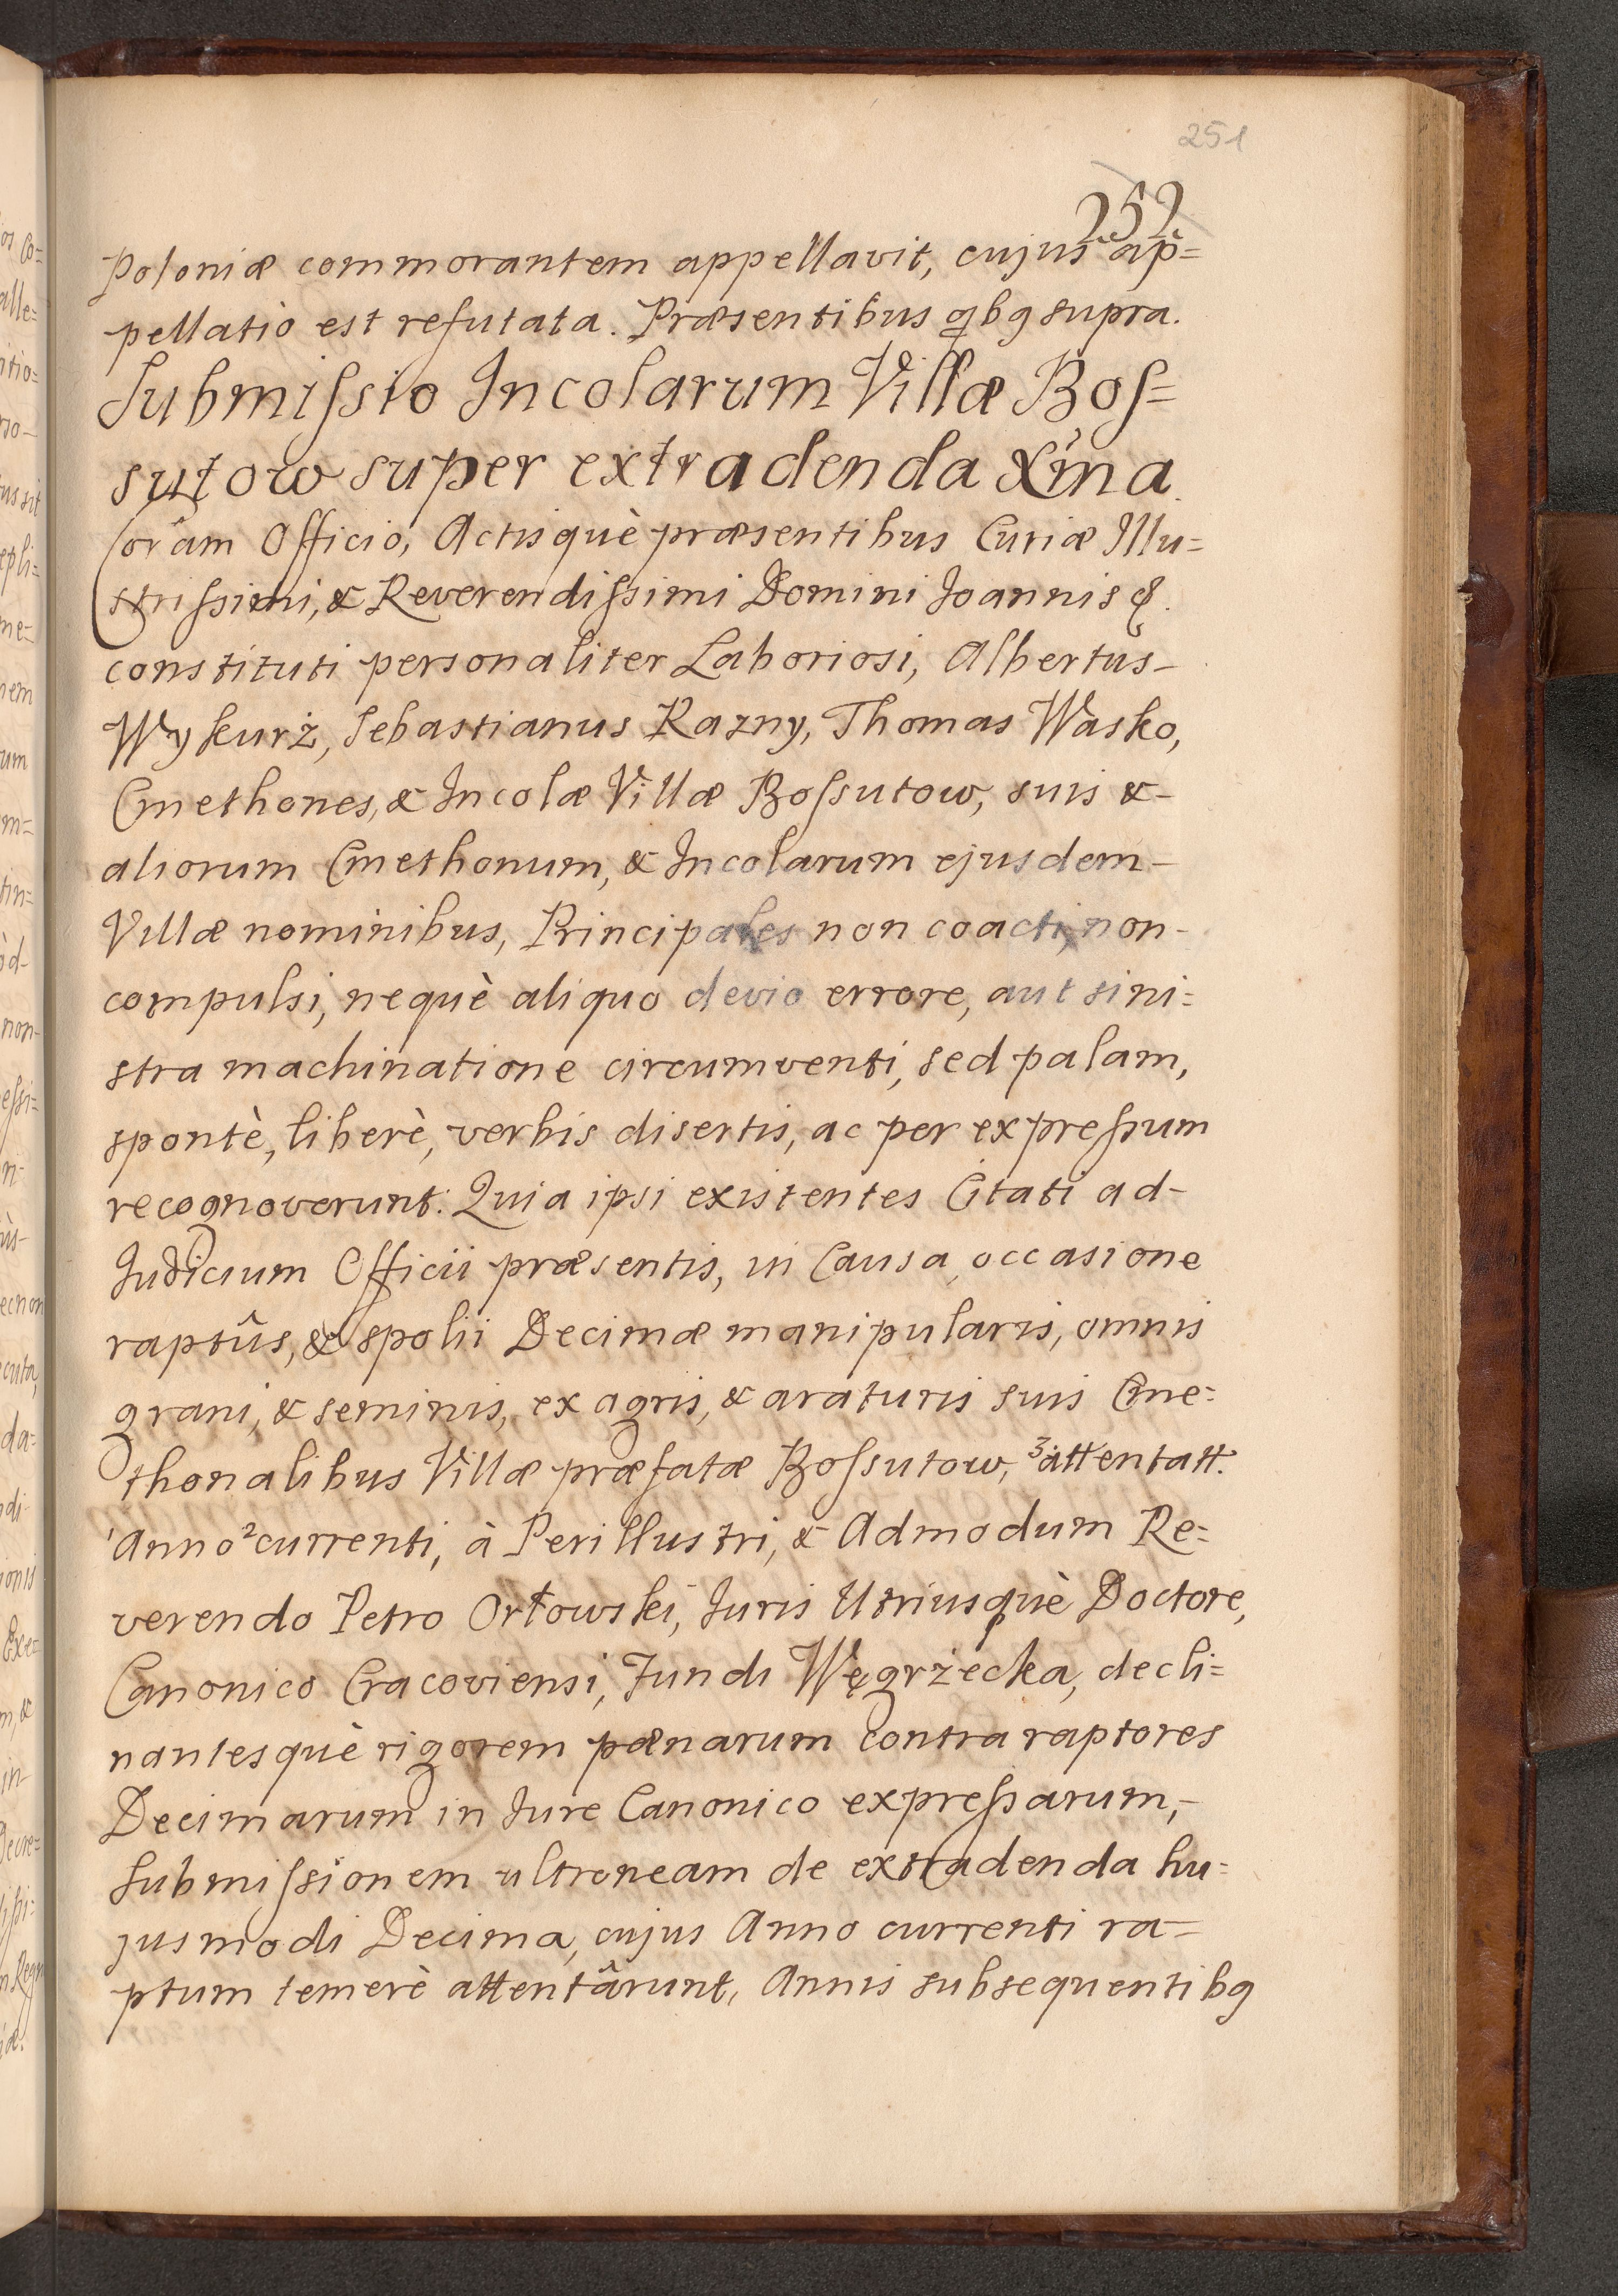 251
252
Poloniæ commorantem appellavit, cujus ap=
pellatiò est refutata. Præsentibus qbg supra.
Submiſsio Incolarum Villæ Boſ=
sutow super extradenda Xma.
Coràm Officio, Actisquè præsentibus Curiæ Illu=
striſsimi, & Reverendiſsimi Domini Joannis &.
constituti personaliter Laboriosi, Albertus-
Wykurż, Sebastianus Razny, Thomas Wasko,
Cmethones, & Incolæ Villæ Boſsutow, suis &-
aliorum Cmethonum, & Incolarum ejusdem-
Villæ nominibus, Principales non coacti, non-
compulsi, nequè aliquo devio errore, aut sini=
stra machinatione circumventi, sed palam,
spontè, liberè, verbis disertis, ac per expreſsum
recognoverunt: Quia ipsi existentes Citati ad-
Judicium Officii præsentis, in Causa, occasione
raptûs, & spolii Decimæ manipularis, omnis
grani, & seminis, ex agris, & araturis suis Cme=
thonalibus Villæ præfatæ Boſsutow, ³attentatt.
¹Anno ²currenti, à Perillustri, & Admodum Re=
verendo Petro Orłowski, Juris Utriusquè Doctore,
Canonico Cracoviensi, Fundi Węgrżecka, decli=
nantesquè rigorem pœnarum contra raptores
Decimarum in Jure Canonico expreſsarum,-
Submiſsionem ultroneam de extradenda hu=
jusmodi Decima, cujus Anno currenti ra-
ptum temerè attentârunt, Annis subsequentibg